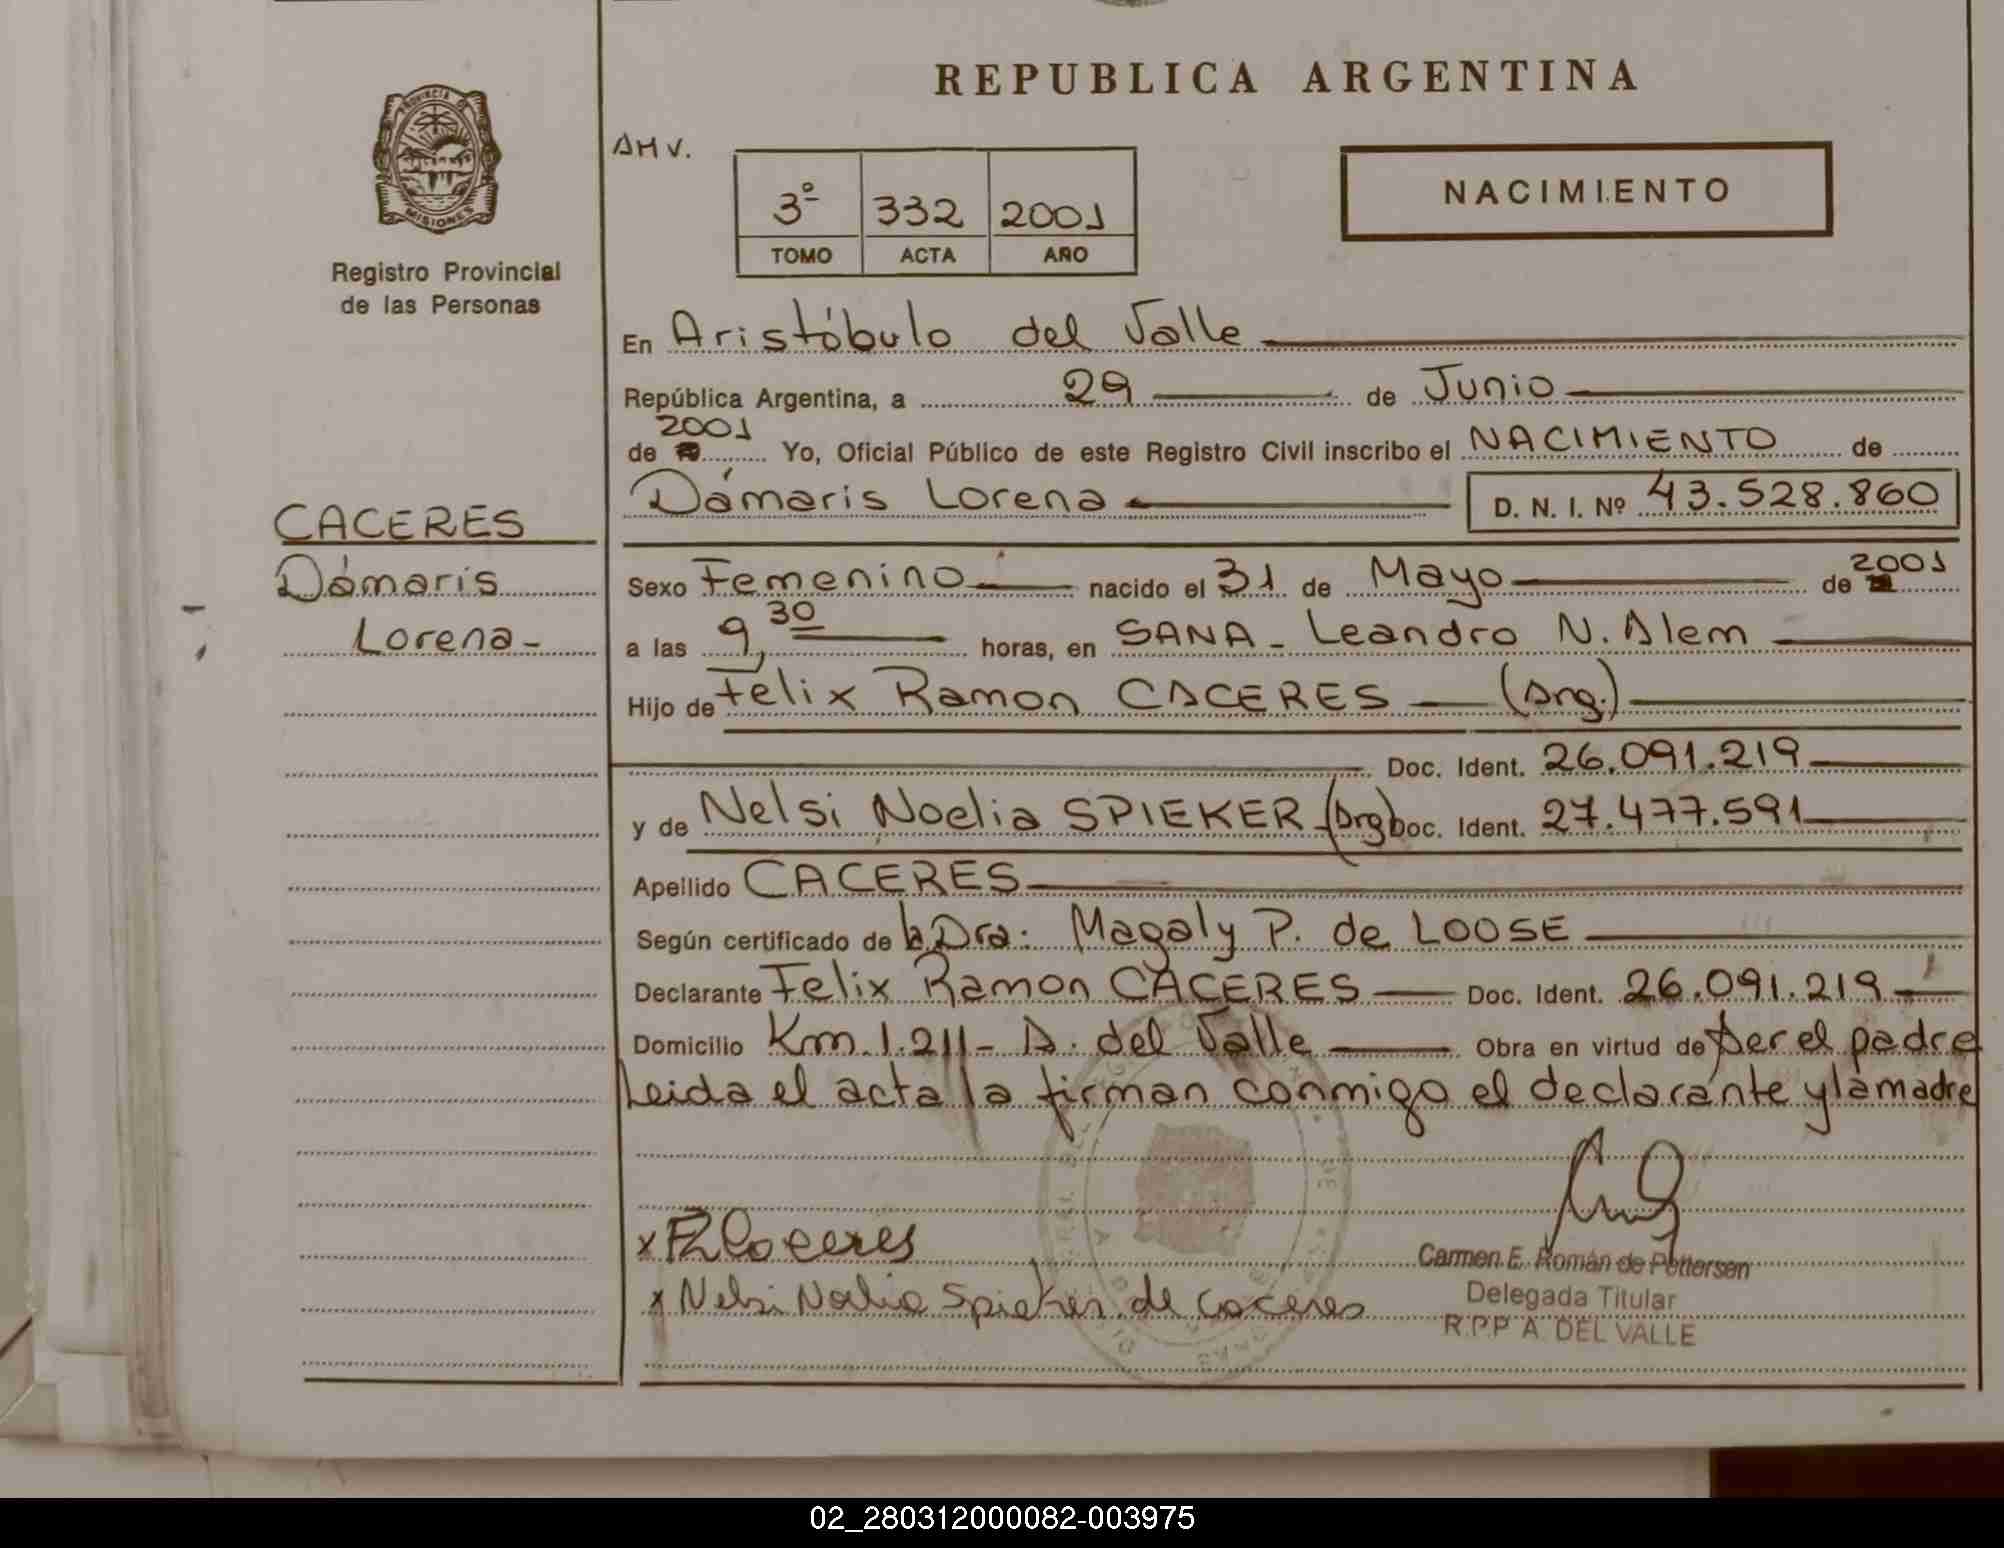 REPUBLICA ARGENTINA
PROVINCIA DE
MISIONES
Registro Provincial
de las Personas
AMV.
3º 332 2001
TOMO ACTA AÑO
NACIMIENTO
En Aristóbulo del Valle
República Argentina, a 29 de Junio
2001
de Yo, Oficial Público de este Registro Civil inscribo el NACIMIENTO de
Dámaris Lorena D. N. I. Nº 43.528.860
CACERES
Dámaris
Lorena-
Sexo Femenino nacido el 31 de Mayo de 2001
a las 9,30 horas, en SANA - Leandro N. Alem
Hijo de Felix Ramon CACERES (Arg.)
Doc. Ident. 26.091.219
y de Nelsi Noelia SPIEKER (Arg) Doc. Ident. 27.477.591
Apellido CACERES
Según certificado de la Dra: Magaly P. de LOOSE
Declarante Felix Ramon CACERES Doc. Ident. 26.091.219
Domicilio Km. 1.211- A. del Valle Obra en virtud de ser el padre
Leida el acta la firman conmigo el declarante y la madre
x FR Caceres
x Nelsi Noelia Spieker de Caceres
Carmen E. Román de Pettersen
Delegada Titular
R.P.P A. DEL VALLE
02_280312000082-003975